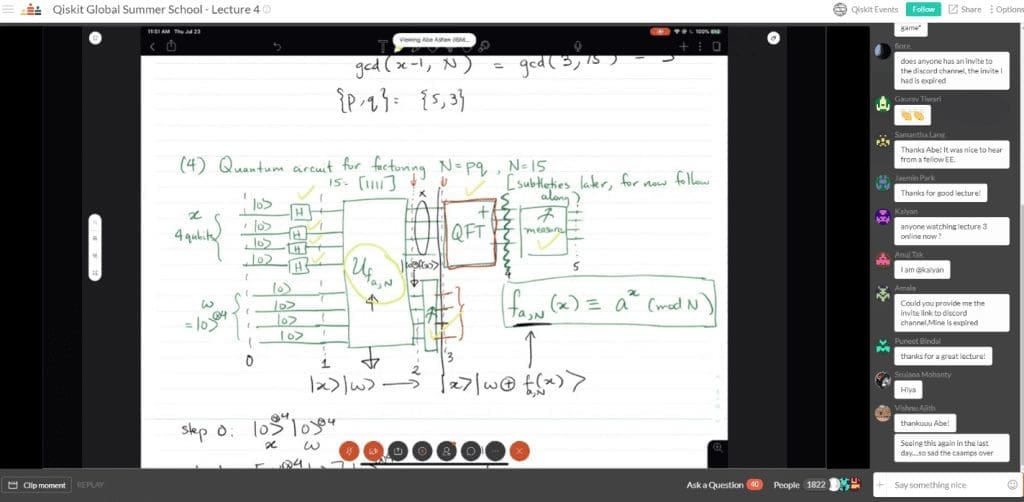 Qiskit Global Summer School - Lecture 4
Qiskit Events
Follow
Share
Options
11:51 AM Thu Jul 23
100%
gcd(x-1, N) = gcd(3, 15) = 3
{p,q} = {5,3}
(4) Quantum circuit for factoring N=pq, N=15
15 = [1111]
[subtleties later, for now follow along]
x
4 qubits
|0> H
|0> H
|0> H
|0> H
w
=|0>⊗4
|0>
|0>
|0>
|0>
U f a,N
x
QFT †
measure
|w⊕f(x)>
0
1
2
3
4
5
f a,N (x) ≡ a^x (mod N)
|x>|w> → |x>|w⊕ f a,N (x)>
step 0: |0>⊗4 |0>⊗4
x w
Clip moment
REPLAY
Ask a Question 40
People 1822
game"
fiore
does anyone has an invite to
the discord channel, the invite I
had is expired
Gaurav Tiwari
Samantha Lang
Thanks Abe! It was nice to hear
from a fellow EE.
Jaemin Park
Thanks for good lecture!
Kalyan
anyone watching lecture 3
online now ?
Anuj Tak
I am @kalyan
Amala
Could you provide me the
invite link to discord
channel,Mine is expired
Puneet Bindal
thanks for a great lecture!
Srujana Mohanty
Hiya
Vishnu Ajith
thankuuu Abe!
Seeing this again in the last
day....so sad the caamps over
Say something nice